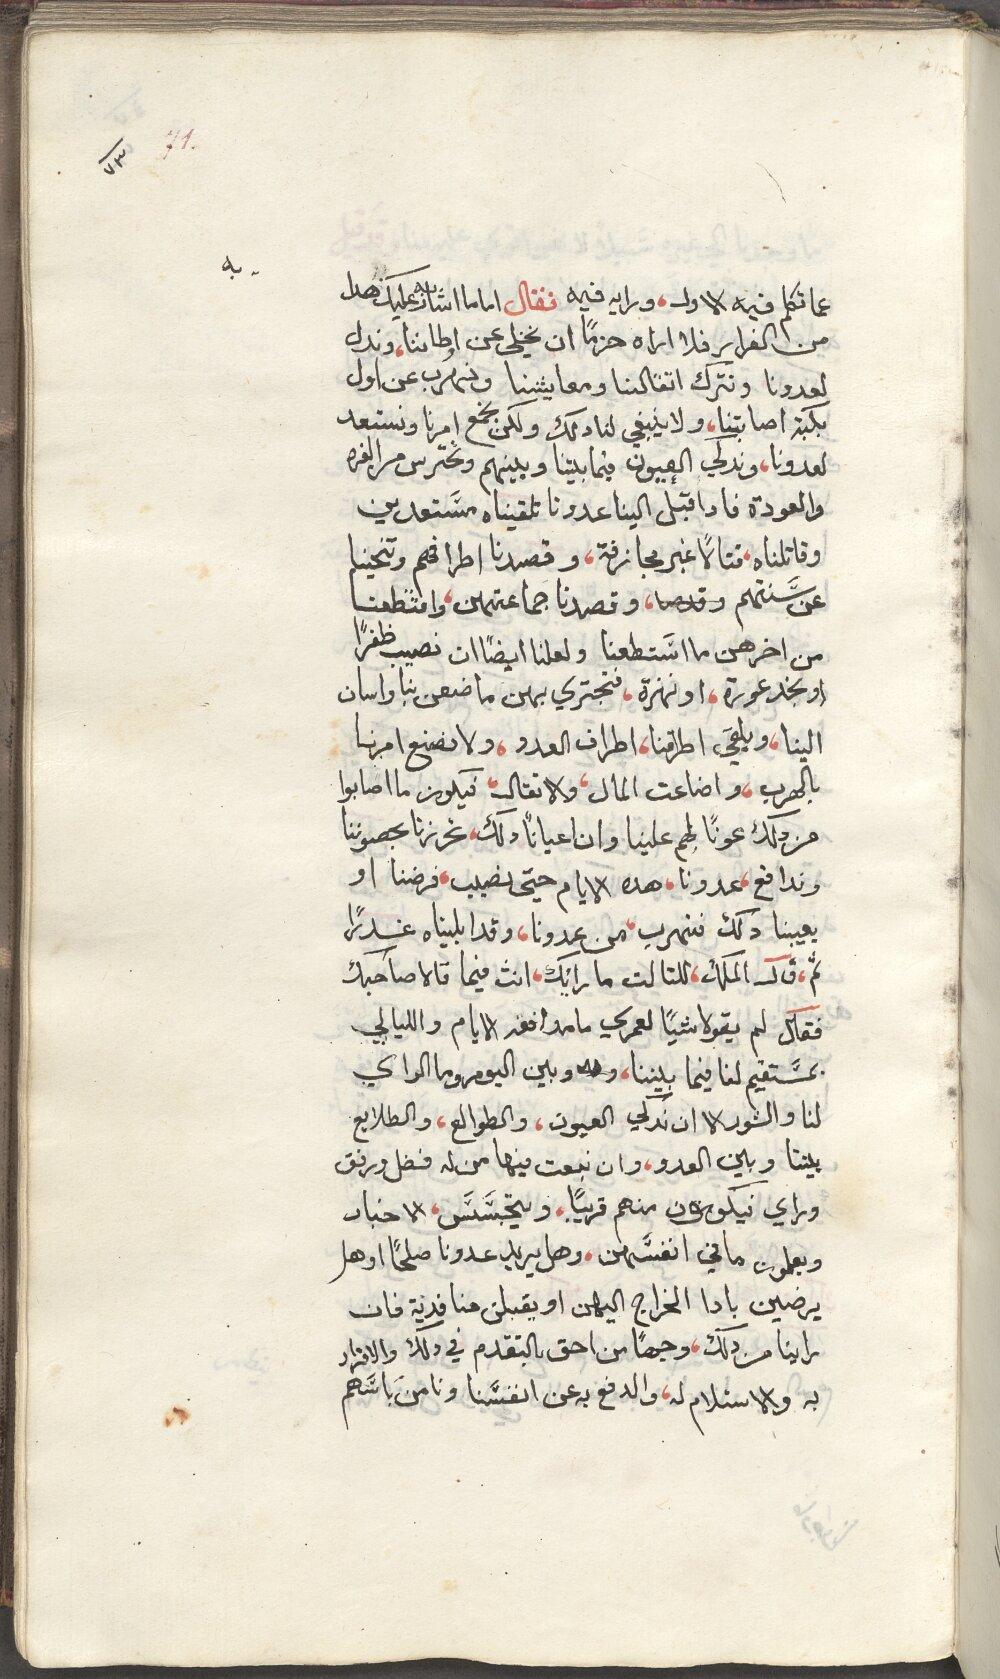 71.
٧٣
به
عما تكلم فيه الاول، ورايه فيه فقال اما ما اشار عليك هدا
من الفرار فلا اراه حزمًا ان نخلي عن اوطاننا، وندل
لعدونا ونترك اتقالنا ومعايشنا ونهرب عن اول
نكبة اصابتنا، ولا ينبغي لنا دلك ولكن نجمع امرنا ونستعد
لعدونا، وندكي العيون فيما بيننا وبينهم ونحترس من الغره
والعودة فادا اقبل الينا عدونا تلقيناه مستعدين
وقاتلناه، قتالًا غير مجازفة، وقصدنا اطرافهم وتنحينا
عن سنتهم، وقصدنا جماعتهن، واقتطعنا
من اخرهن ما استطعنا ولعلنا ايضًا ان نصيب ظفرًا
او نجد عورة، او نهزة، فنجتري بهن ما صنعن بنا واسان
الينا، ويلقي اطرافنا، اطراف العدو، ولا نضيع امرنا
بالهرب، واضاعت المال، والاتقال، فيكون ما اصابوا
من دلك عونًا لهم علينا وان اعيانا دلك، تحرزنا بحصوننا
وندافع، عدونا، هده الايام حتى نصيب، فرصنا او
يعيينا دلك فنهرب، من عدونا، وقد ابليناه عدرًا
تم، قال الملك، للتالت ما رايك، انت فيما قالا صاحبك
فقال لم يقولا شيًا لعمري ما مدافعه الايام والليالي
بمستقيم لنا فيما بيننا، وبين اليوم وما الراي
لنا والشور الا ان ندكي العيون، والطوالع، والطلايع
بيننا وبين العدو، وان نبعت فيها من له فضل ورفق
وراي فيكون منهم قريبًا، ويتجسس، الاخبار
ويعلمون ما في انفسهن، وهل يريد عدونا صلحًا او هل
يرضين بادا الخراج اليهن او يقبلن منا فدية فان
راينا من دلك، وجهًا من احق بالتقدم في دلك والاقرار
به والاستلام له، والدفع به عن انفسنا ونامن باسهم